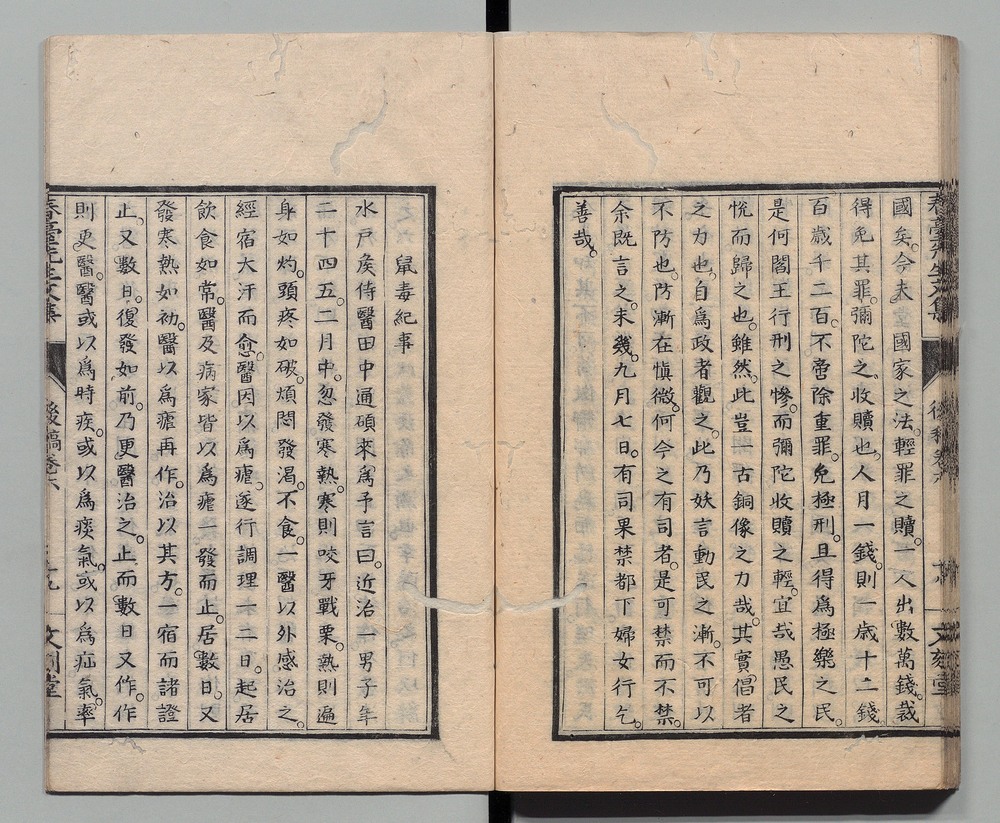 國矣。今夫國家之法。輕罪之贖。一人出數萬錢。裁
得免其罪。彌陀之收贖也。人月一錢。則一歲十二錢。
百歲千二百。不啻除重罪。免極刑。且得爲極樂之民。
是何閻王行刑之慘。而彌陀收贖之輕。宜哉愚民之
悅而歸之也。雖然。此豈古銅像之力哉。其實倡者
之力也。自爲政者觀之。此乃妖言動民之漸。不可以
不防也。防漸在愼微。何今之有司者。是可禁而不禁。
余既言之。未幾。九月七日。有司果禁都下婦女行乞。
善哉。
鼠毒紀事
水戶侯侍醫田中通碩來爲予言曰。近治一男子年
二十四五。二月中。忽發寒熱。寒則咬牙戰栗。熱則遍
身如灼。頭疼如破。煩悶發渴。不食。一醫以外感治之。
經宿大汗而愈。醫因以爲瘧。遂行調理一二日。起居
飲食如常。醫及病家皆以爲瘧一發而止。居數日。又
發寒熱如初。醫以爲瘧再作。治以其方。一宿而諸證
止。又數日。復發如前。乃更醫治之。止而數日又作。作
則更醫。醫或以爲時疾。或以爲痰氣。或以爲疝氣。率
後稿卷六